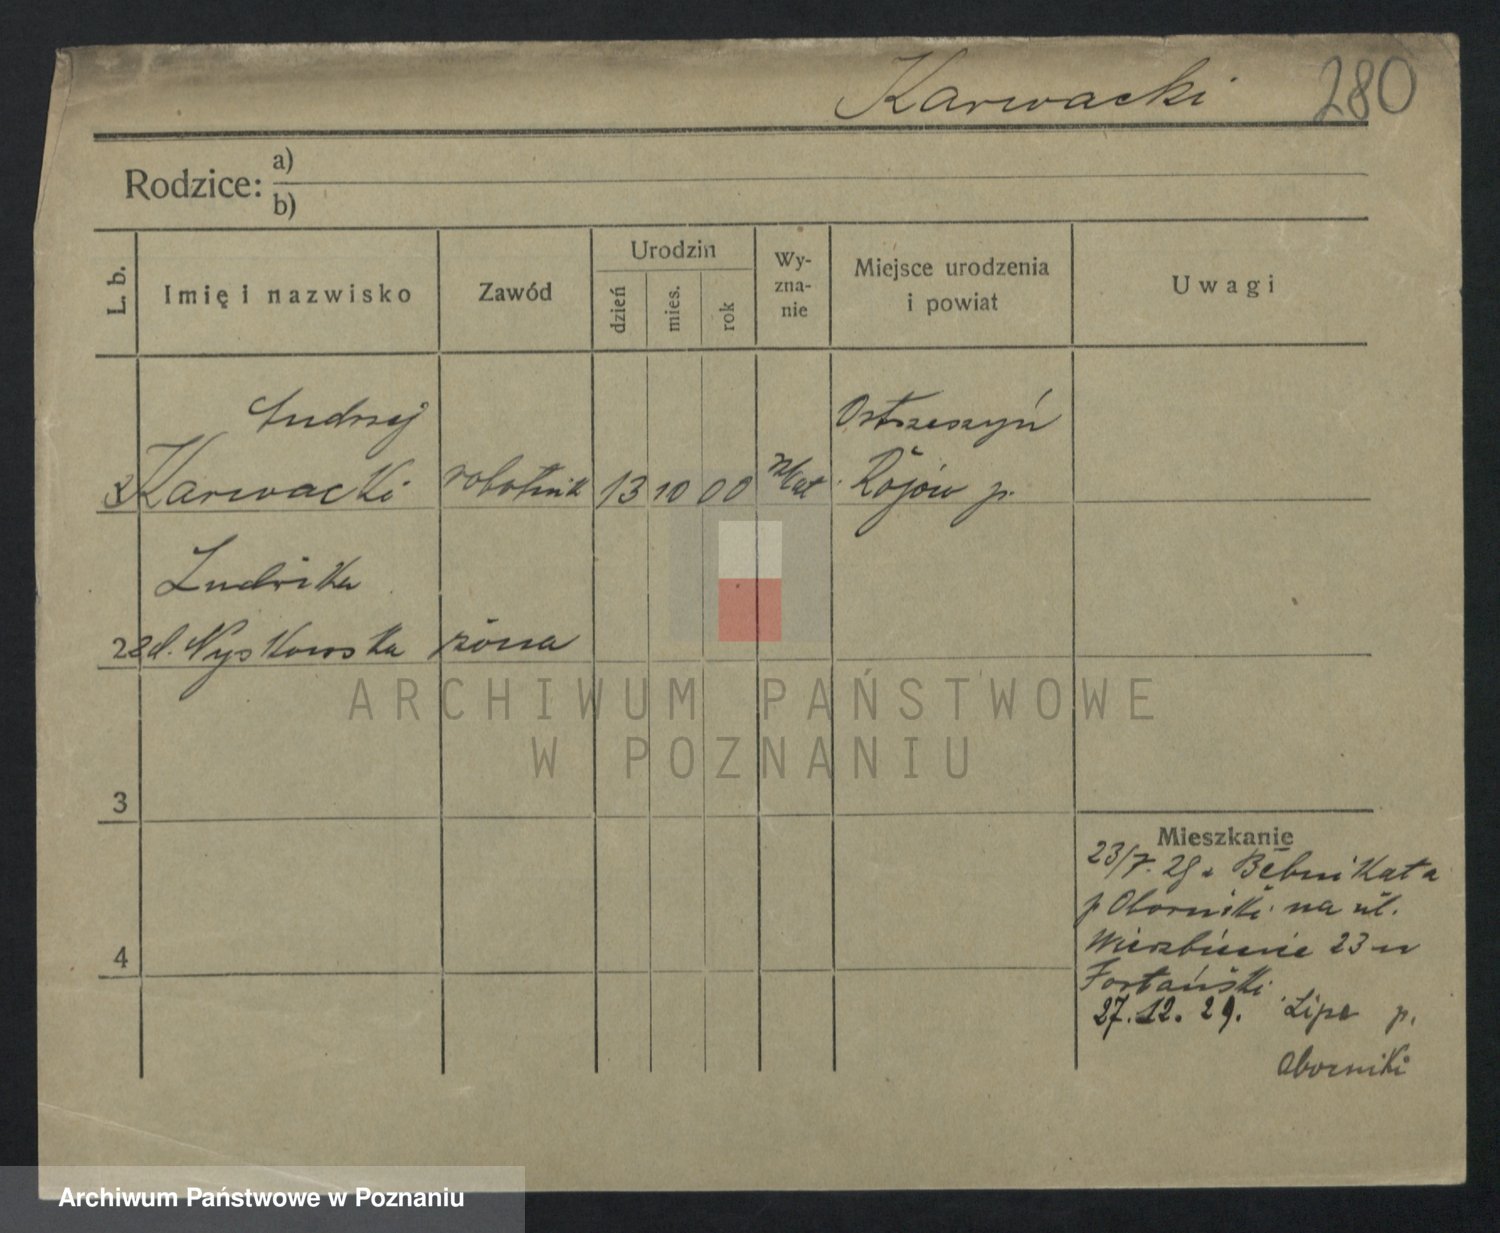 Karwacki 280
Rodzice: a)
b)
L. b.
Imię i nazwisko
Zawód
Urodzin
dzień
mies.
rok
Wy-
zna-
nie
Miejsce urodzenia
i powiat
Uwagi
Andrzej
Karwacki robotnik 13 10 00 rkat. Rojów p.
Ostrzeszyń
Ludwika
2 zd. Nyskowska żona
3
4
Mieszkanie
23/7. 29. z Bębnikąta
p Oborniki na ul.
Wierzbięcie 23 u
27. 12. 29. Lipe p.
Oborniki
ARCHIWUM PAŃSTWOWE
W POZNANIU
Archiwum Państwowe w Poznaniu